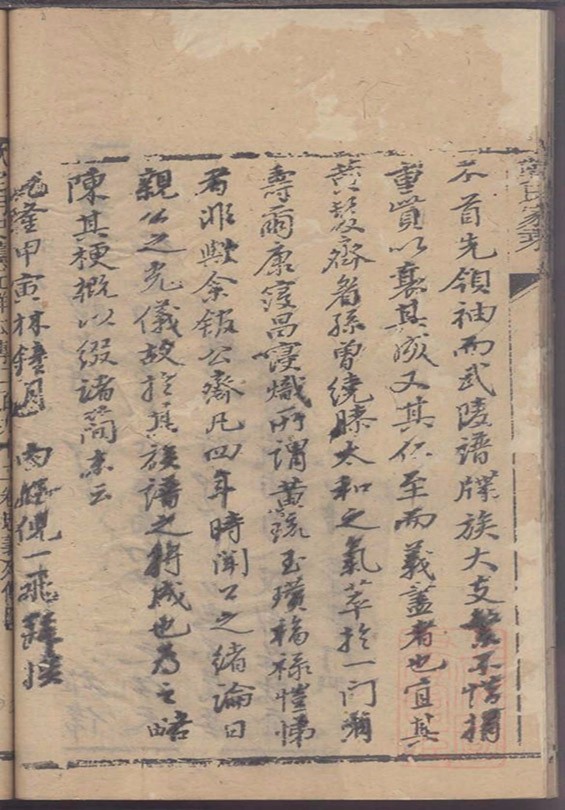 不首先領袖而武陵譜牒族大支繁不惜捐
重貲以襄其成又其仁至而義盡者也宜其
黃髮齊眉孫曾繞膝太和之氣萃於一門爾
壽爾康寖昌寖熾所謂黃流玉瓚福祿愷悌
者非歟余館公齋凡四年時聞公之緒論日
親公之光儀故於其族譜之將成也為之略
陳其梗概以綴諸簡末云
乾隆甲寅林鐘月 內姪倪一飛
氏家乘